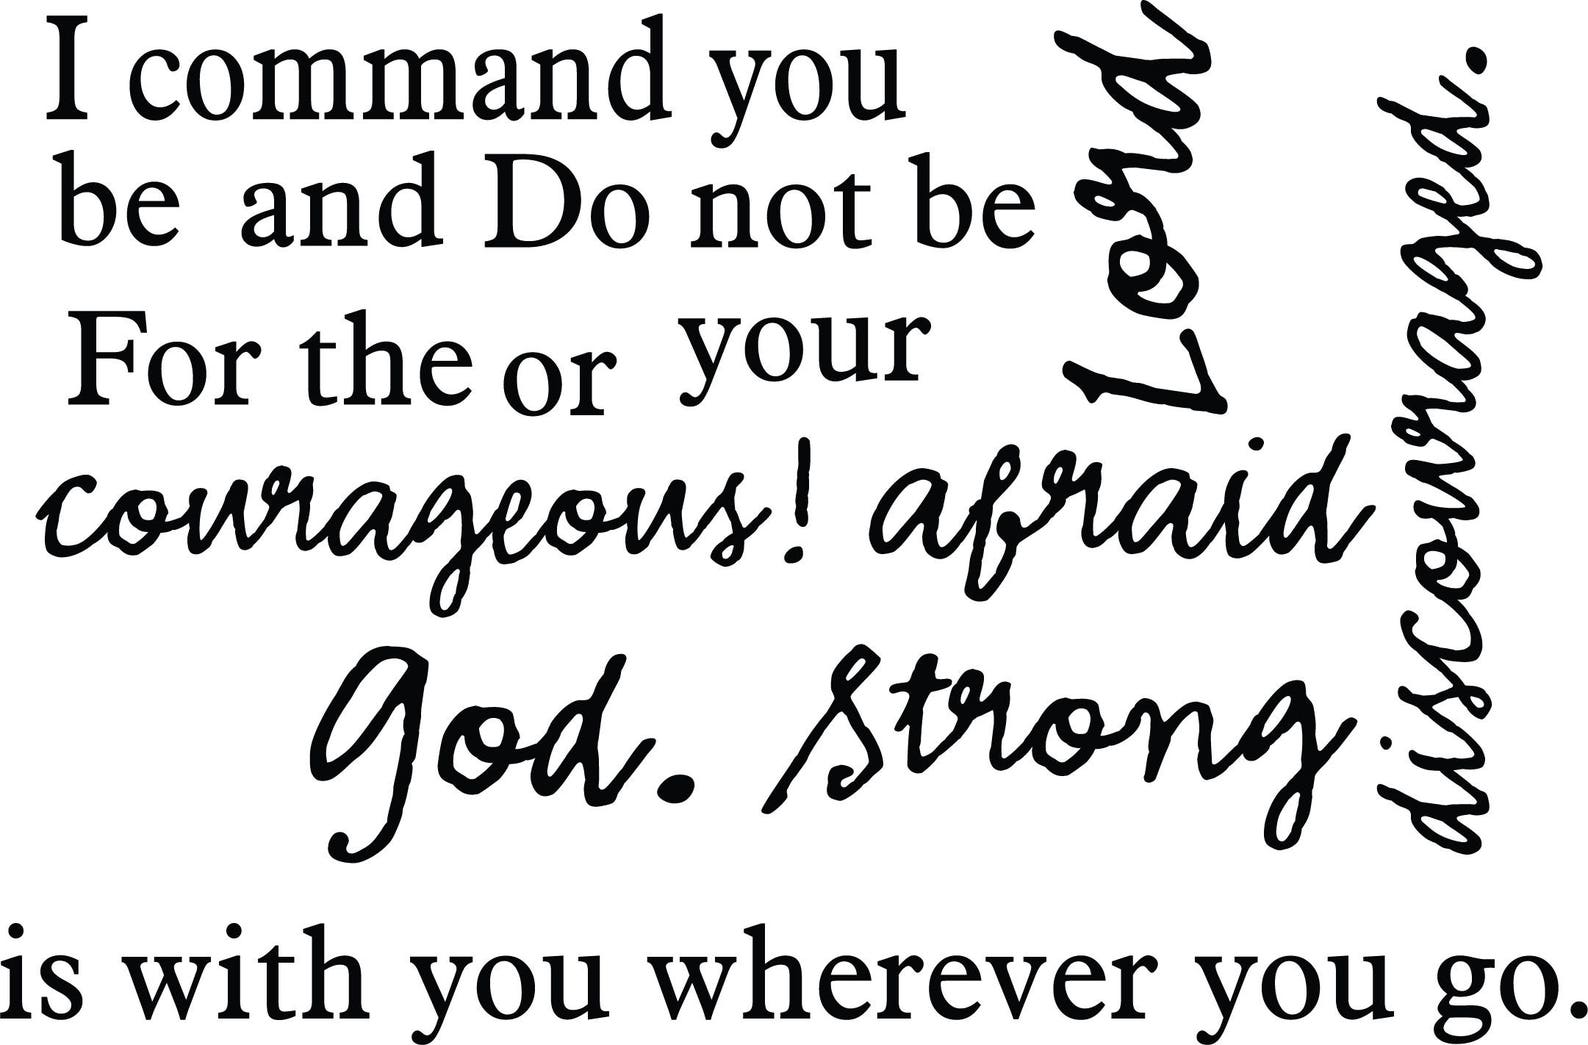 I command you
be and Do not be
For the or your
Lord
discouraged.
courageous! afraid
God. Strong
is with you wherever you go.